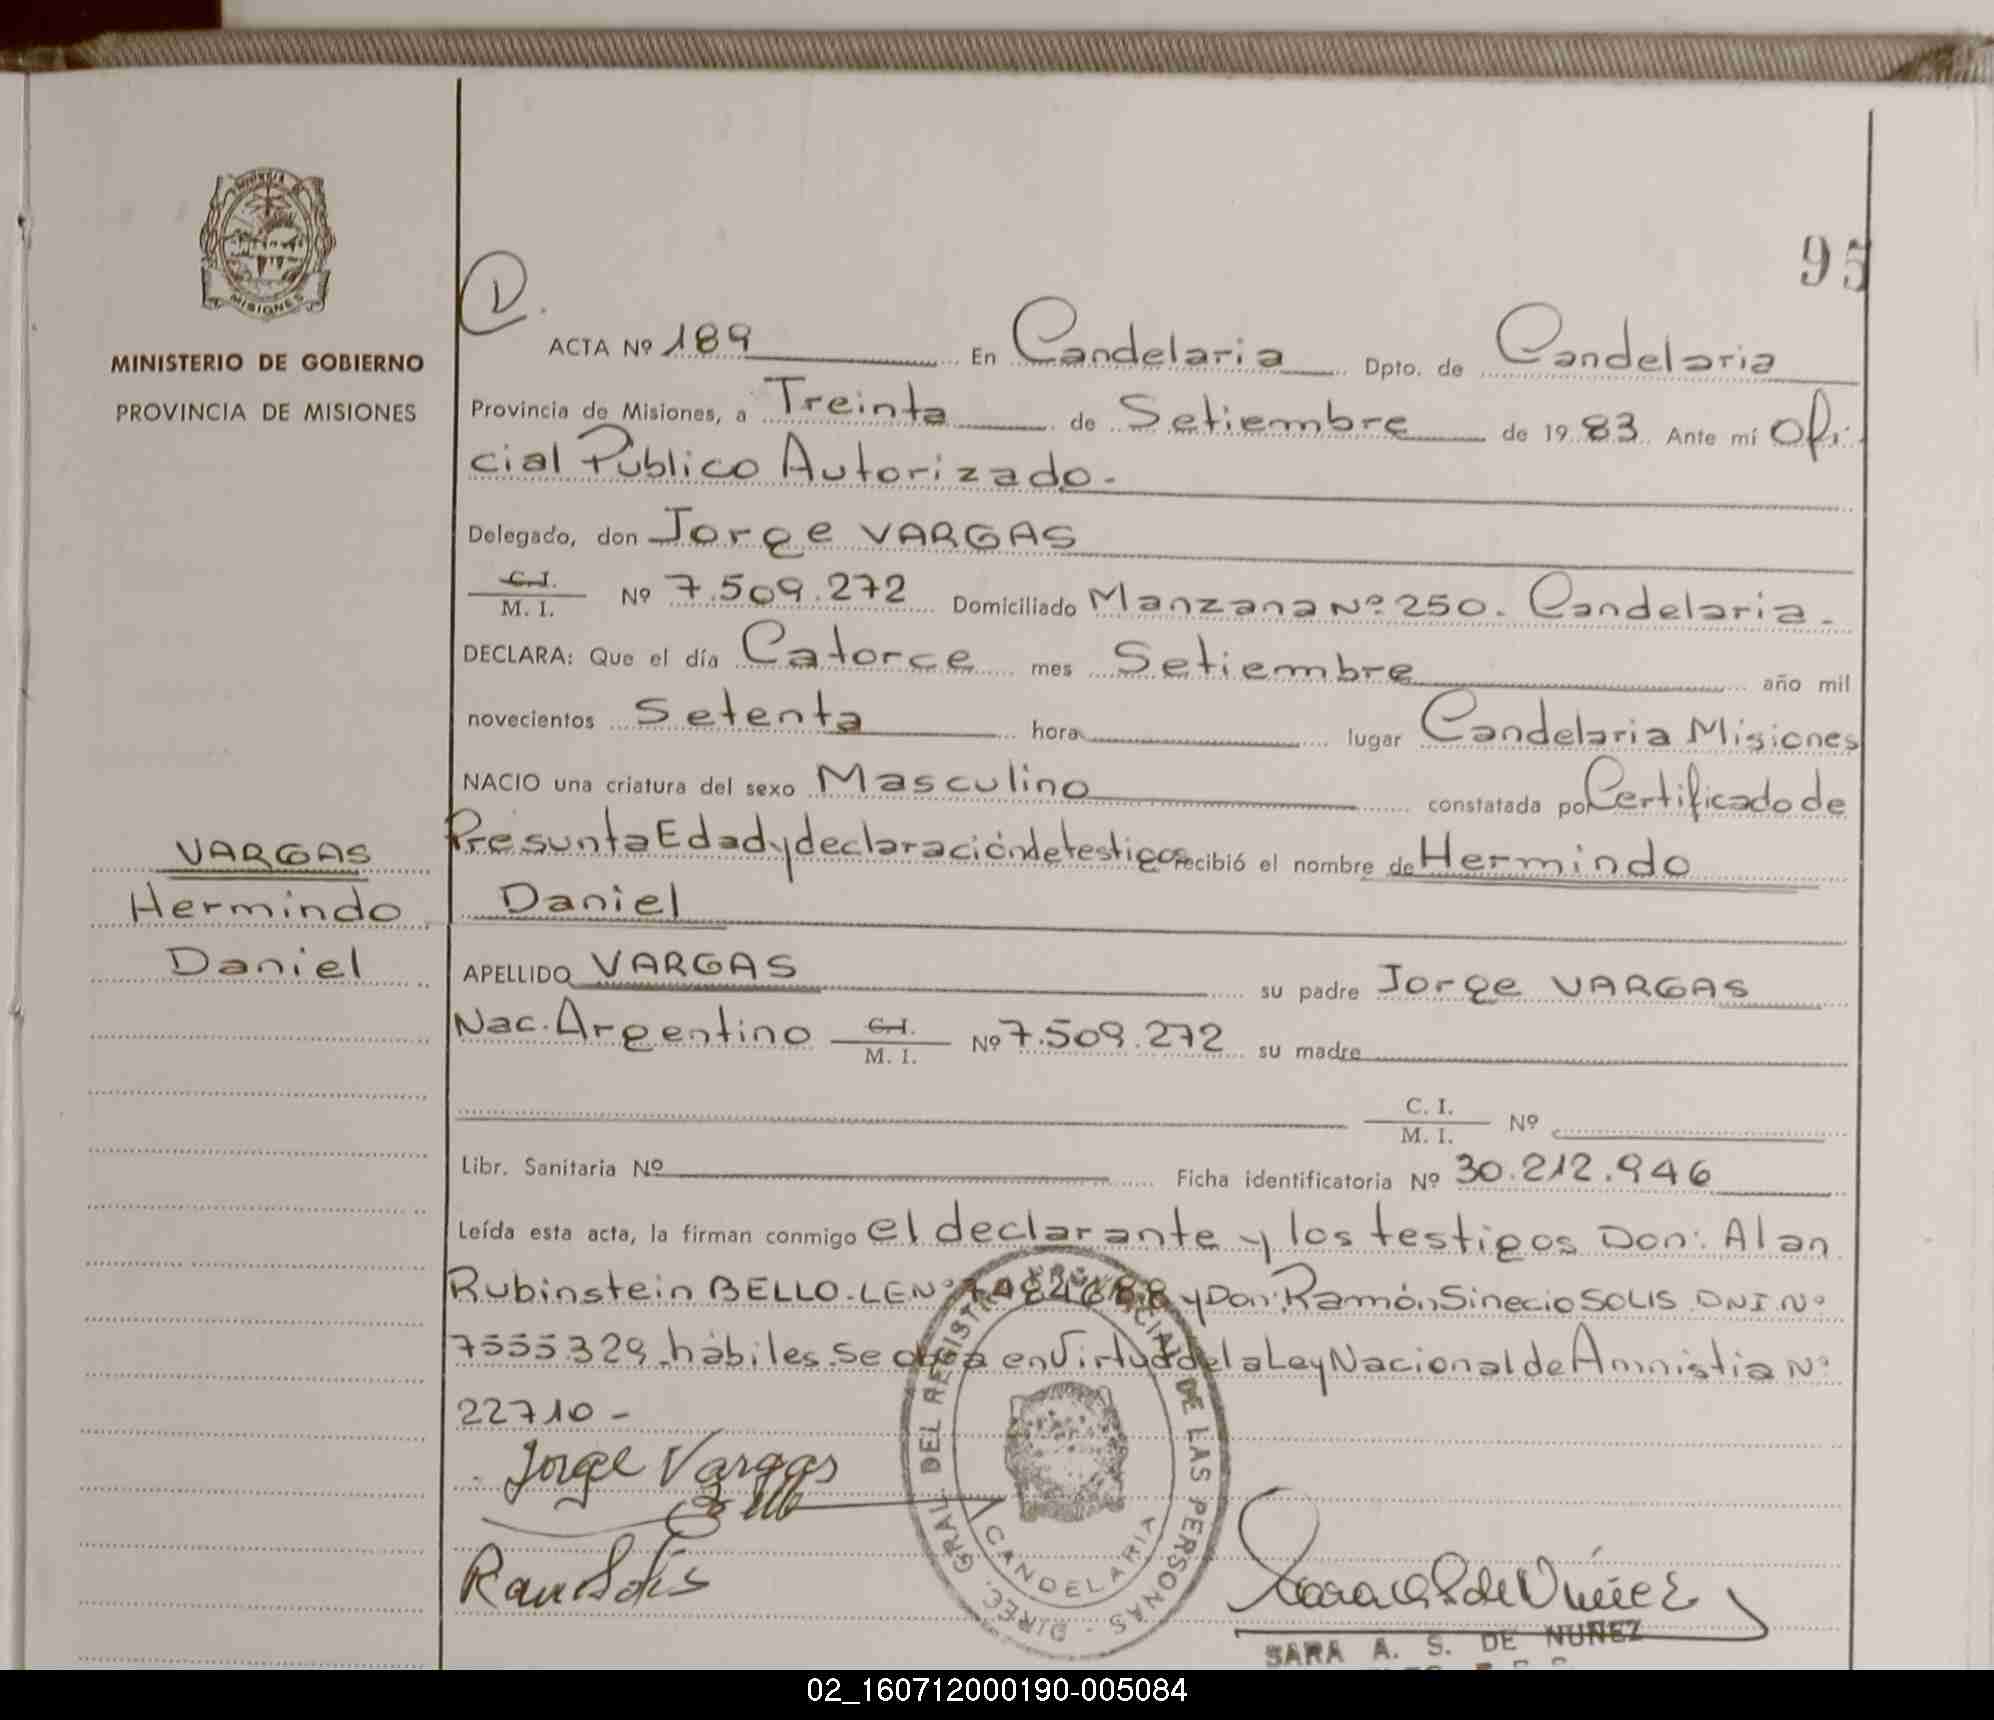 95
MISIONES
MINISTERIO DE GOBIERNO
PROVINCIA DE MISIONES
D.
ACTA Nº 189 En Candelaria Dpto. de Candelaria
Provincia de Misiones, a Treinta de Setiembre de 1983 Ante mí Ofi-
cial Público Autorizado.
Delegado, don Jorge VARGAS
C.I. / M. I. Nº 7.509.272 Domiciliado Manzana Nº 250. Candelaria.
DECLARA: Que el día Catorce mes Setiembre año mil
novecientos Setenta hora lugar Candelaria Misiones
NACIO una criatura del sexo Masculino constatada por Certificado de
Presunta Edad y declaración de testigos recibió el nombre de Hermindo
Daniel
VARGAS
Hermindo
Daniel
APELLIDO VARGAS su padre Jorge VARGAS
Nac. Argentino C.I. / M. I. Nº 7.509.272 su madre
C. I. / M. I. Nº
Libr. Sanitaria Nº Ficha identificatoria Nº 30.212.946
Leída esta acta, la firman conmigo el declarante y los testigos Don: Alan
Rubinstein BELLO. LE Nº y Don: Ramón Sinecio SOLIS DNI Nº
7555329 hábiles. Se obra en Virtud de la Ley Nacional de Amnistia Nº
22710 -
Jorge Vargas
Bello
Ramon Solis
DIREC. GRAL. DEL REGISTRO PROVINCIAL DE LAS PERSONAS -
CANDELARIA
SARA A. S. DE NUÑEZ
02_160712000190-005084